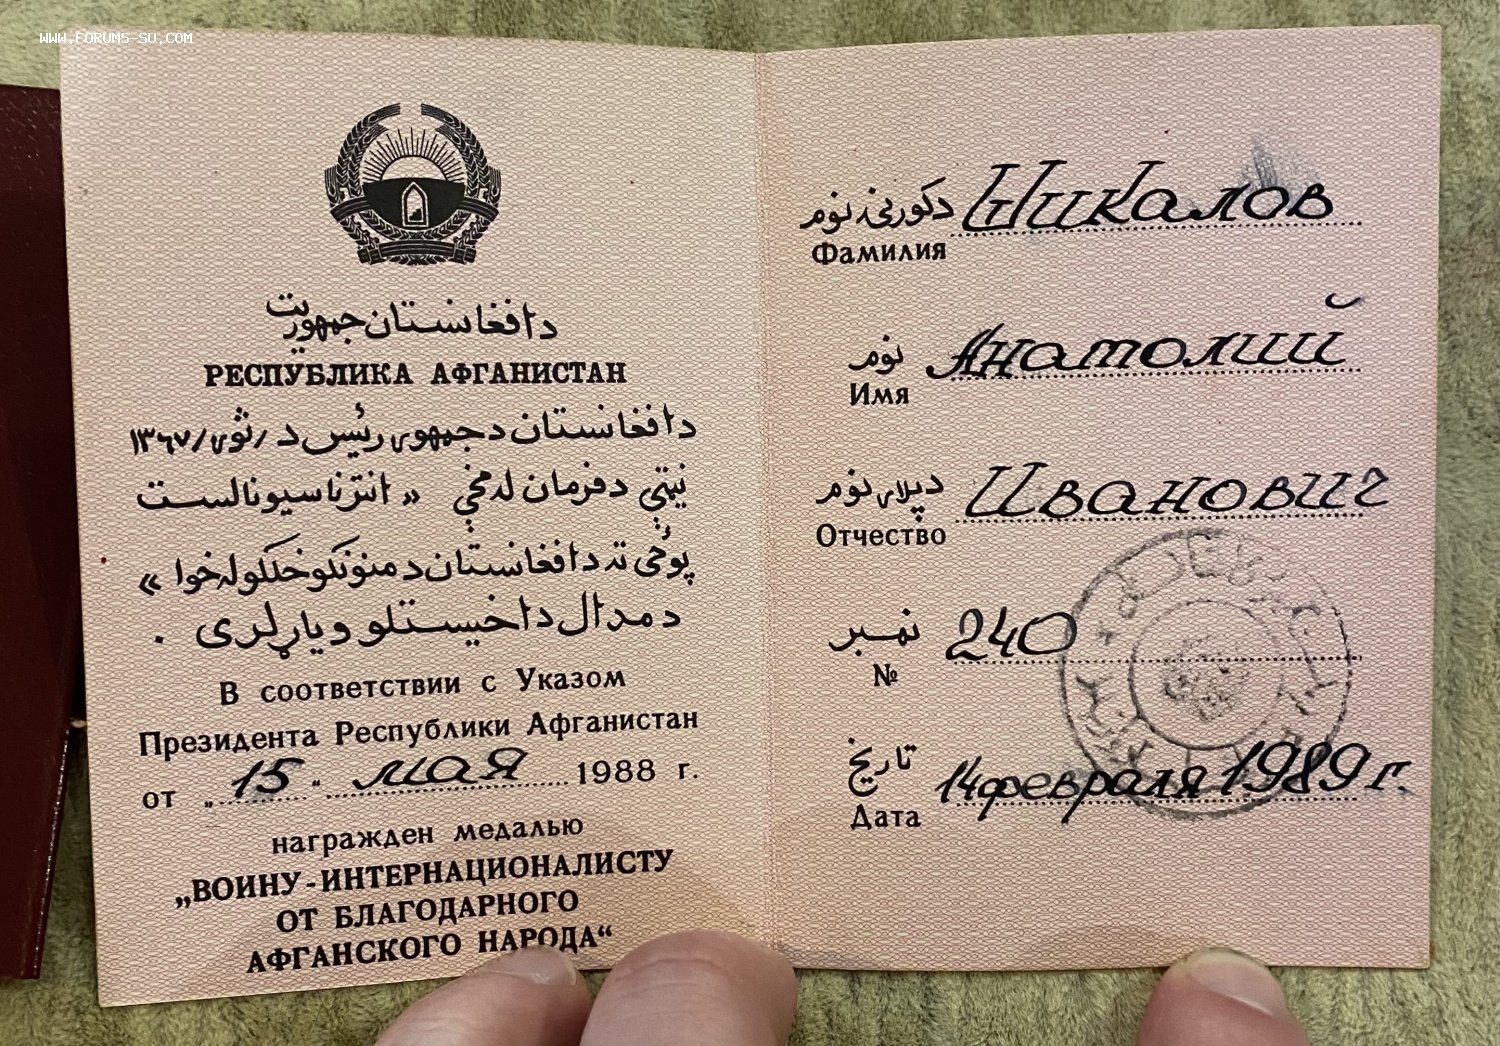 WWW.FORUMS-SU.COM
دافغانستان جمهوریت
РЕСПУБЛИКА АФГАНИСТАН
دافغانستان دجمهوری رئیس د / ثوری / ۱۳۶۷
نیټې دفرمان له مخې « انترناسیونالست
پوځی ته دافغانستان د منونکو خلکو له خوا »
د مدال داخیستلو ویاړ لری .
В соответствии с Указом
Президента Республики Афганистан
от „15“ мая 1988 г.
награжден медалью
„ВОИНУ-ИНТЕРНАЦИОНАЛИСТУ
ОТ БЛАГОДАРНОГО
АФГАНСКОГО НАРОДА“
دکورنۍ نوم
Фамилия Шикалов
نوم
Имя Анатолий
دپلار نوم
Отчество Иванович
نمبر
№ 240
تاریخ
Дата 14 февраля 1989 г.